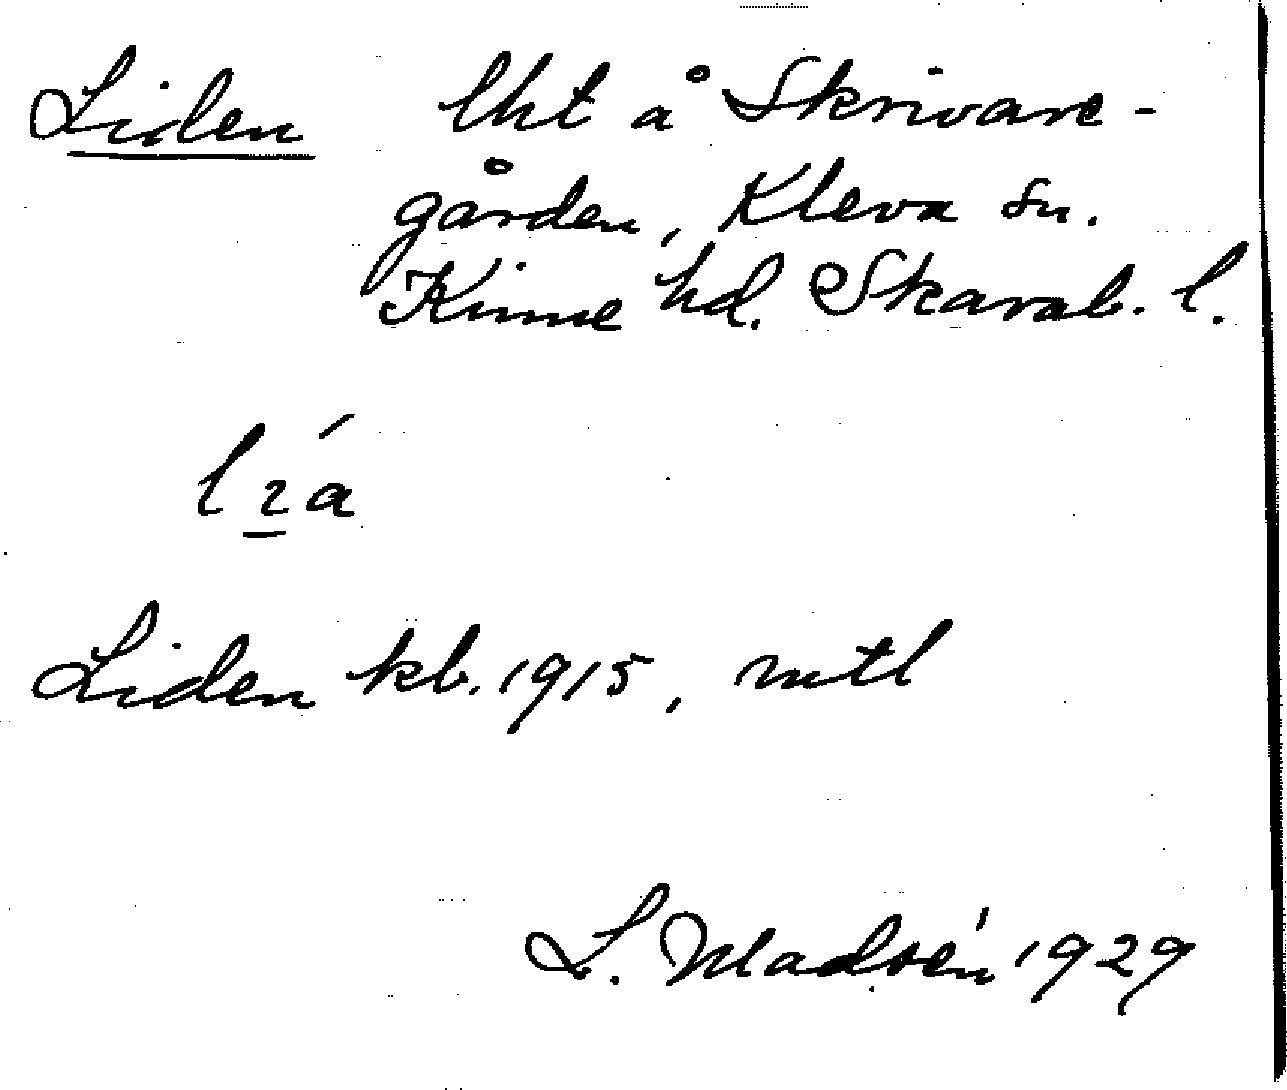 Liden lht å Skrivare-
gården, Kleva sn.
Kinne hd. Skarab. l.
lı̱á
Liden kb. 1915, mtl
L. Madsén 1929